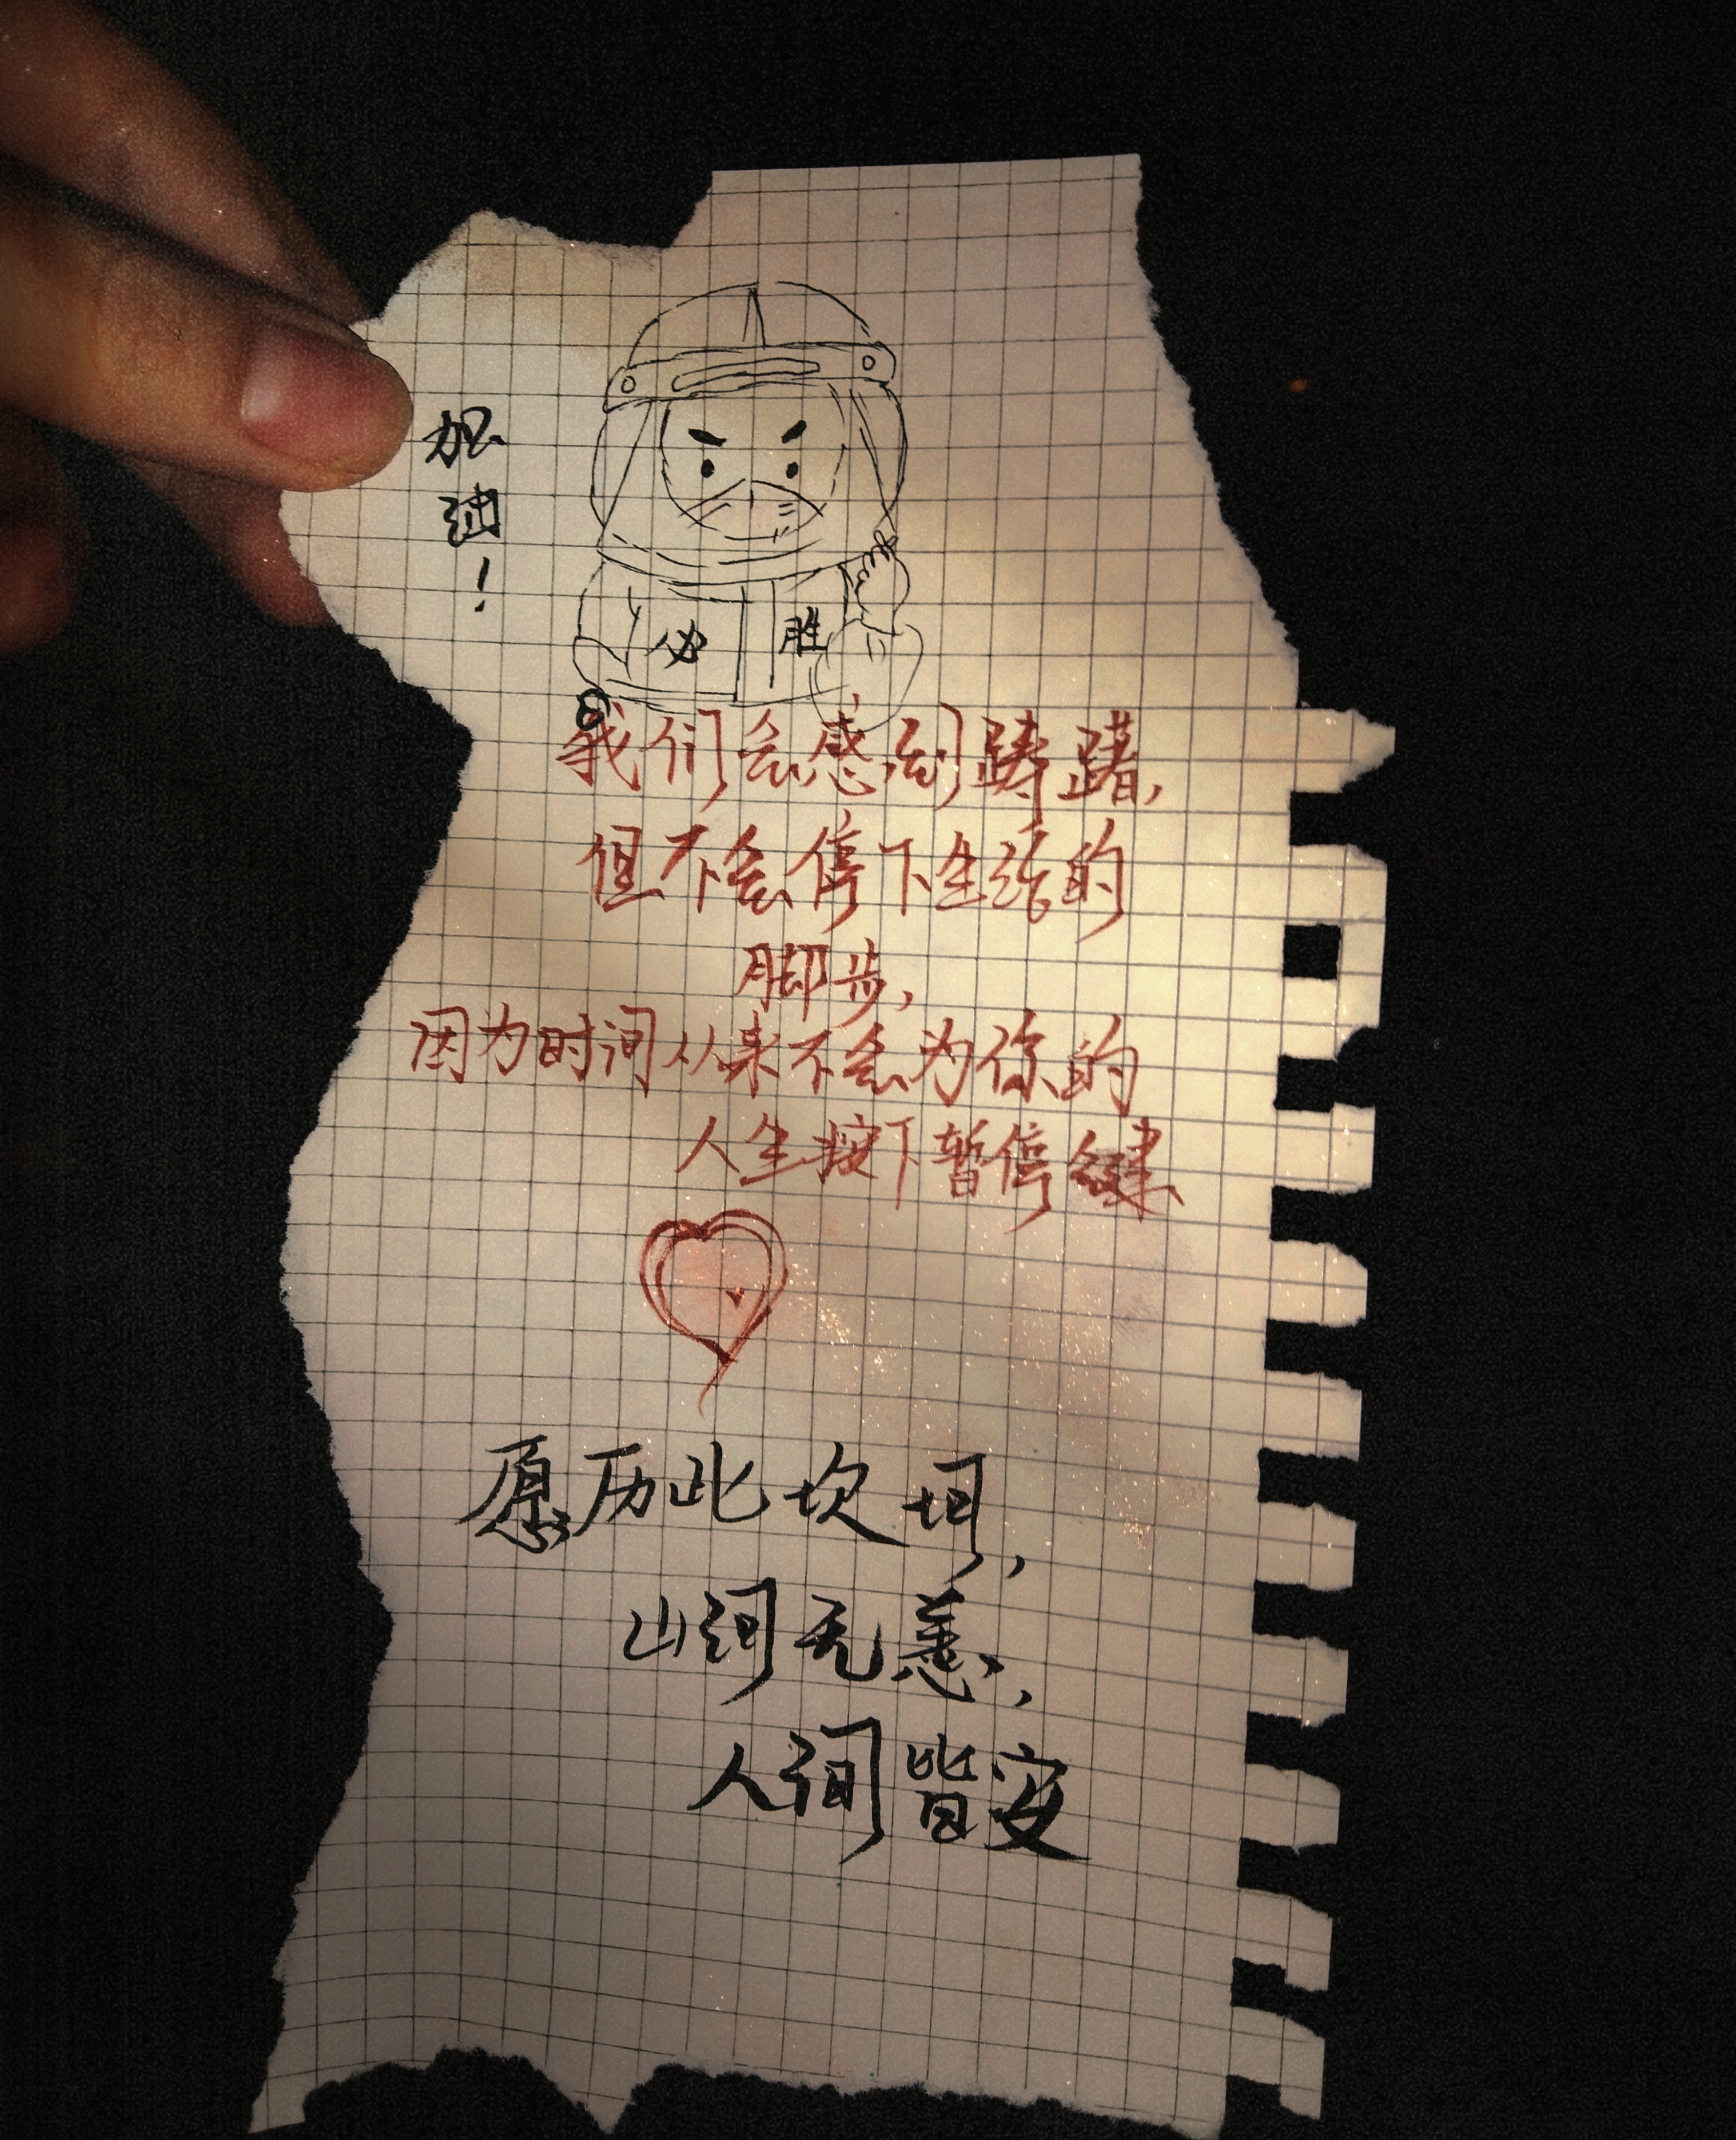 加油!
必 胜
我们会感到踌躇,
但不会停下生活的
脚步,
因为时间从来不会为你的
人生按下暂停键
愿历此坎坷,
山河无恙,
人间皆安